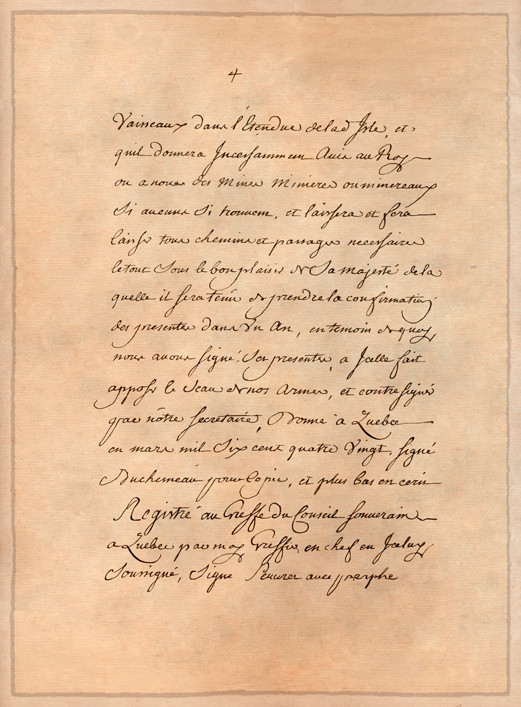 4
Vaisseaux dans l'Etendue de lad Isle, et
quil donnera Incessamment Avis au Roy
ou a nous des Mines Minieres ou minereaux
Si aucuns Si trouvent, et laissera et fera
laisser tous chemins et passages necessaires
le tout Sous le bon plaisir de Sa Majesté de la
quelle il sera tenu de prendre la confirmation
des presentes dans Un An, en temoin de quoy
nous avons signé Ses presentes, a Icelle fait
apposé le Sceau de nos Armes, et contresigné
par nôtre Secretaire, Donné à Quebec
en mars mil Six cent quatre Vingt, signé
Duchesneau pour Copie, et plus bas en ecrit
Registré au Greffe du Conseil Souverain
a Quebec par moy Greffier en chef en Iceluy
Soussigné, Signé Peuvret avec paraphe